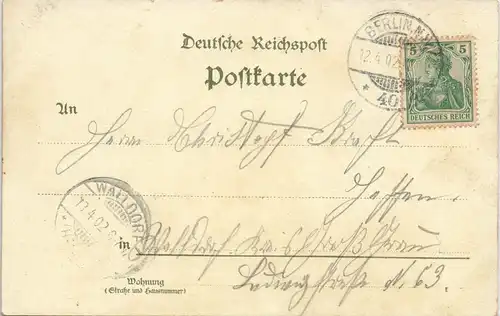 Deutsche Reichspost
Postkarte
BERLIN N.W.
12.4.02
* 40
5 5
DEUTSCHES REICH
An
Herrn Christoph
Hessen
WALLDORF
13.4.02
in Walldorf
Wohnung
(Straße und Hausnummer)
Ludwigstraße N. 63.